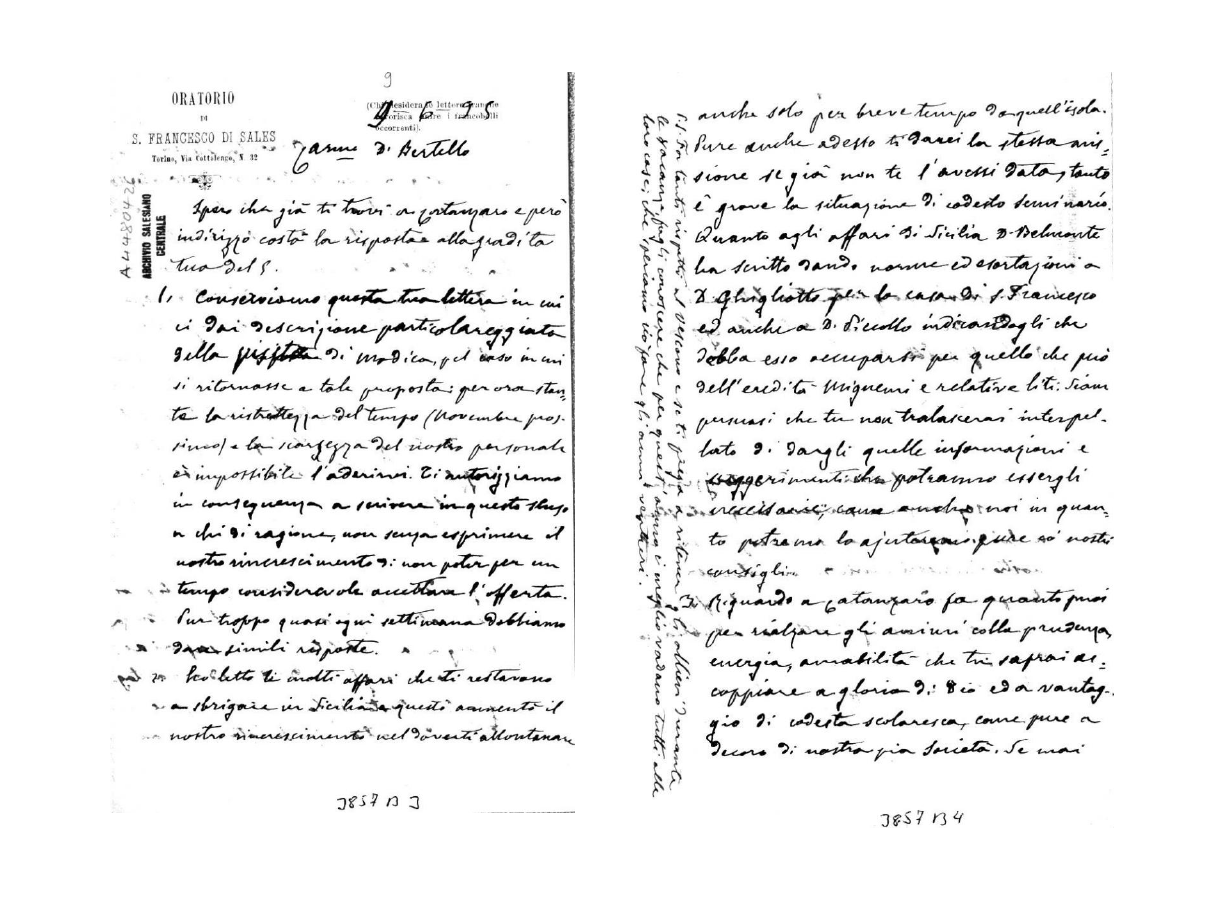 9
ORATORIO
DI
S. FRANCESCO DI SALES
Torino, Via Cottolengo, N. 32
(Chi desidera le lettere franche
favorisca unire i francobolli
occorrenti).
9 6 95
Car.mo D. Bertello
A4480426
ARCHIVIO SALESIANO
CENTRALE
Spero che già ti trovi a Catanzaro e però
indirizzo costà la risposta alla gradita
tua del 5.
1. Conserviamo questa tua lettera in cui
ci dai descrizione particolareggiata
della di Modica, pel caso in cui
si ritornasse a tale proposta: per ora stan-
te la ristrettezza del tempo (Novembre pros-
simo) e la scarsezza del nostro personale
è impossibile l'aderirvi. Ti autorizziamo
in conseguenza a scrivere in questo senso
a chi di ragione, non senza esprimere il
nostro rincrescimento di non poter per un
tempo considerevole accettare l'offerta.
Pur troppo quasi ogni settimana dobbiamo
dare simili risposte.
2. Ho letto li molti affari che ti restavano
a sbrigare in Sicilia e questo aumentò il
nostro rincrescimento nel doverti allontanare
3857 B 3
anche solo per breve tempo da quell'isola.
Pure anche adesso ti darei la stessa mis-
sione se già non te l'avessi data, tanto
è grave la situazione di codesto seminario.
Quanto agli affari di Sicilia D. Belmonte
ha scritto dando norme ed esortazioni a
D. Ghigliotto per la casa di S. Francesco
ed anche a D. Piccollo indicandogli che
debba esso occuparsi per quello che può
dell'eredità Migneni e relative liti. Siam
persuasi che tu non tralascerai interpel-
lato di dargli quelle informazioni e
suggerimenti che potranno essergli
necessarie, come anche noi in quan-
to potremo lo ajuteremo pure co' nostri
consigli.
3. Riguardo a Catanzaro fa quanto puoi
per rialzare gli animi colla prudenza,
energia, amabilità che tu saprai ac-
coppiare a gloria di Dio ed a vantag-
gio di codesta scolaresca, come pure a
decoro di nostra pia Società. Se mai
P.S. Fa tanti rispetti al Vescovo e se ti prega a ritenere gli allievi durante
le vacanze fagli conoscere che per quest'anno è meglio vadano tutti alle
loro case, che speriamo ciò farà gli animi
3857 B 4